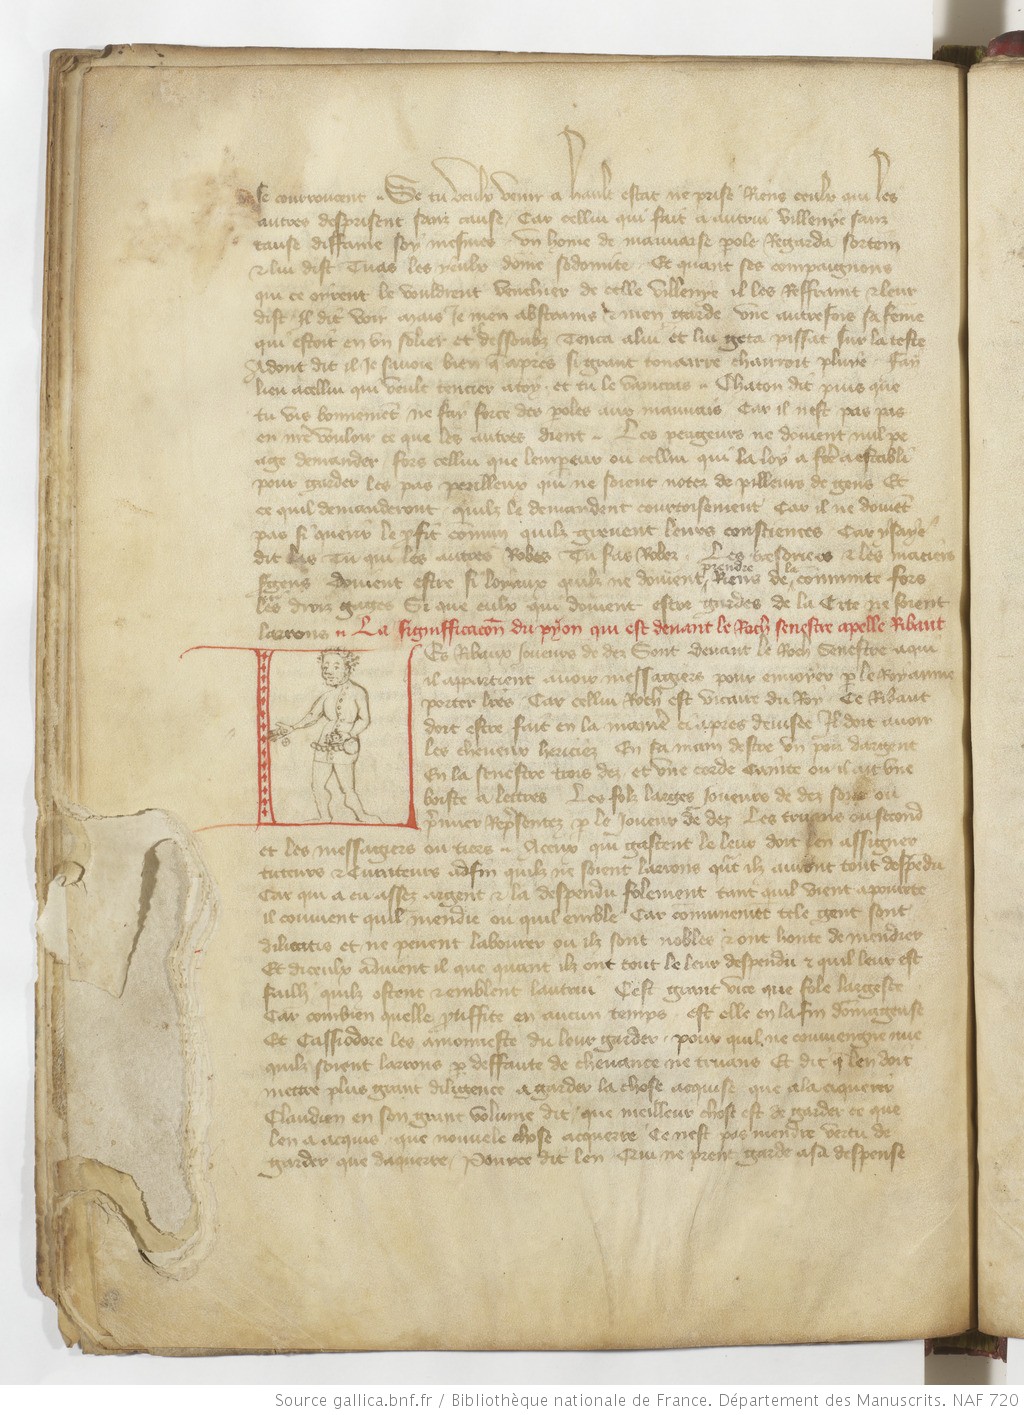 se courroucent . Se tu veulx venir a hault estat ne prise Riens ceulx qui les
autres desprisent sanz cause / Car cellui qui fait a autrui villenye sanz
cause diffame soy mesmes . un home de mauvaise pole Regarda sortem
& lui dist Tu as les yeulx dome sodomite . Et quant ses compaignons
qui ce oyrent le vouldrent venchier de celle villenye il les Reffraint & leur
dist Il dit voir mais Je men abstrains & men garde une autrefois sa feme
qui estoit en un solier et dessoubz Tenca a lui et lui geta pissat sur la teste
Adont dit il Je savoie bien q apres si grant tonnarre chairroit pluye . Fay
lieu a cellui qui veult tencier a toy . et tu le vaincras . Chaton dit puis que
tu vis bonnement ne fay force des poles aux mauvais Car il nest pas pas
en nre vouloir ce que les autres dient . Les peageurs ne doivent nul pe
age demander fors cellui que lempeur ou cellui qui la loy a fcē a establi
pour garder les pas perilleux qui ne soient notez de pilleurs de gens Et
ce quil demanderont quilz le demandent courtoisement Car il ne doivet
pas si querir le pfit comun quilz grievent leurs consciences . Car ysaye
dit las Tu qui les autres Robes Tu seras Robez . Les tresoriers & les
sgens doivent estre si loyaux quilz ne doivent prendre Riens de la commute fors
les droiz gages Si que ceulx qui doivent estre gardes de la Cite ne soient
larrons .. La signifficacon du pyon qui est devant le Roch senestre apelle Ribaut
Les Ribaux Joueurs de dez Sont devant le Roch Senestre a qui
il appartient avoir messagiers pour envoyer p le Royaume
porter lres . Car cellui Roch est vicaire du Roy . Ce Ribaut
doit estre fait en la maniere cy apres devisee Il doit avoir
les cheveux hericiez En sa main destre un pou dargent
En la senestre trois dez . et une corde Cainte ou il ait une
boiste a lectres Les folz larges Joueurs de dez sont ou
premier Represente p le Joueur de dez Les truans ou second
et les messagiers ou tiers .. A ceux qui gastent le leur doit len assigner
tuteurs & Curateurs adfin quilz ne soient larrons quant ilz auront tout despendu
Car qui a eu assez argent & la despendu folement tant quil vient a pourete
il convient quil mendie ou quil emble Car comunement tele gent sont
delicatis et ne pevent labourer ou ilz sont nobles & ont honte de mendier
Et diceulx advient il que quant ilz ont tout le leur despendu & quil leur est
failli quilz ostent & emblent lautrui Cest grant vice que fole largesce
Car combien quelle proffite en aucun temps . est elle en la fin domageuse
Et Cassiodore les amonneste du leur garder . pour quil ne conviengne mie
quilz soient larrons p deffaute de chevance ne truans Et dit q len doit
mettre plus grant diligence a garder la chose acquise que a la aquerir
Claudien en son grant volume dit / que meilleur chose est de garder ce que
len a acquis . que nouvele chose acquerre Ce nest pas mendre vertu de
garder que daquerre / Pource dit len Qui ne prent garde a sa despense
Source gallica.bnf.fr / Bibliothèque nationale de France. Département des Manuscrits. NAF 720